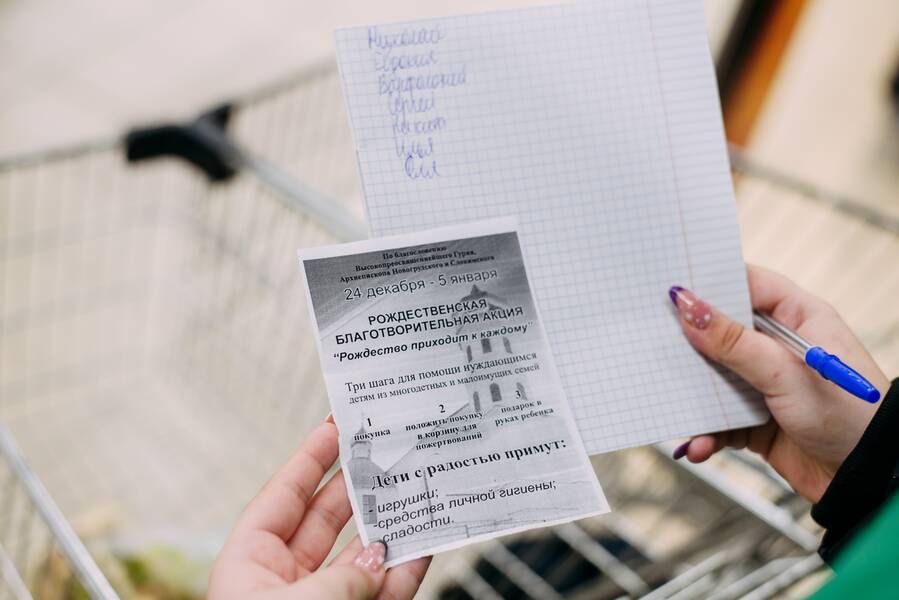 Николай
Евгений
Варфоломей
Сергей
Никита
Илья
По благословению
Высокопреосвященнейшего Гурия,
Архиепископа Новогрудского и Слонимского
24 декабря - 5 января
РОЖДЕСТВЕНСКАЯ
БЛАГОТВОРИТЕЛЬНАЯ АКЦИЯ
"Рождество приходит к каждому"
Три шага для помощи нуждающимся
детям из многодетных и малоимущих семей
1 2 3
покупка положить покупку подарок в
в корзину для руках ребенка
пожертвований
Дети с радостью примут:
-игрушки;
-средства личной гигиены;
-сладости.